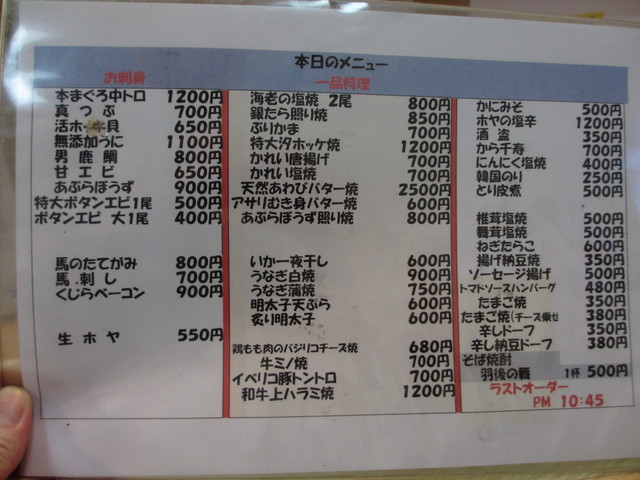 本日のメニュー
お刺身
本まぐろ中トロ 1200円
真つぶ 700円
活ホ 貝 650円
無添加うに 1100円
男鹿鯛 800円
甘エビ 650円
あぶらぼうず 900円
特大ボタンエビ1尾 500円
ボタンエビ 大1尾 400円
馬のたてがみ 800円
馬刺し 700円
くじらベーコン 900円
生ホヤ 550円
一品料理
海老の塩焼 2尾 800円
銀たら照り焼 850円
ぶりかま 700円
特大汐ホッケ焼 1200円
かれい唐揚げ 700円
かれい塩焼 700円
天然あわびバター焼 2500円
アサリむき身バター焼 600円
あぶらぼうず照り焼 800円
いか一夜干し 600円
うなぎ白焼 900円
うなぎ蒲焼 750円
明太子天ぷら 600円
炙り明太子 600円
鶏もも肉のバジリコチーズ焼 680円
牛ミノ焼 700円
イベリコ豚トントロ 700円
和牛上ハラミ焼 1200円
かにみそ 500円
ホヤの塩辛 1200円
酒盗 350円
から千寿 700円
にんにく塩焼 400円
韓国のり 250円
とり皮煮 500円
椎茸塩焼 500円
舞茸塩焼 500円
ねぎたらこ 600円
揚げ納豆焼 350円
ソーセージ揚げ 500円
トマトソースハンバーグ 480円
たまご焼 350円
たまご焼(チーズ乗せ 380円
辛しドーフ 350円
辛し納豆ドーフ 380円
そば焼酎
羽後の舞 1杯 500円
ラストオーダー
PM 10:45